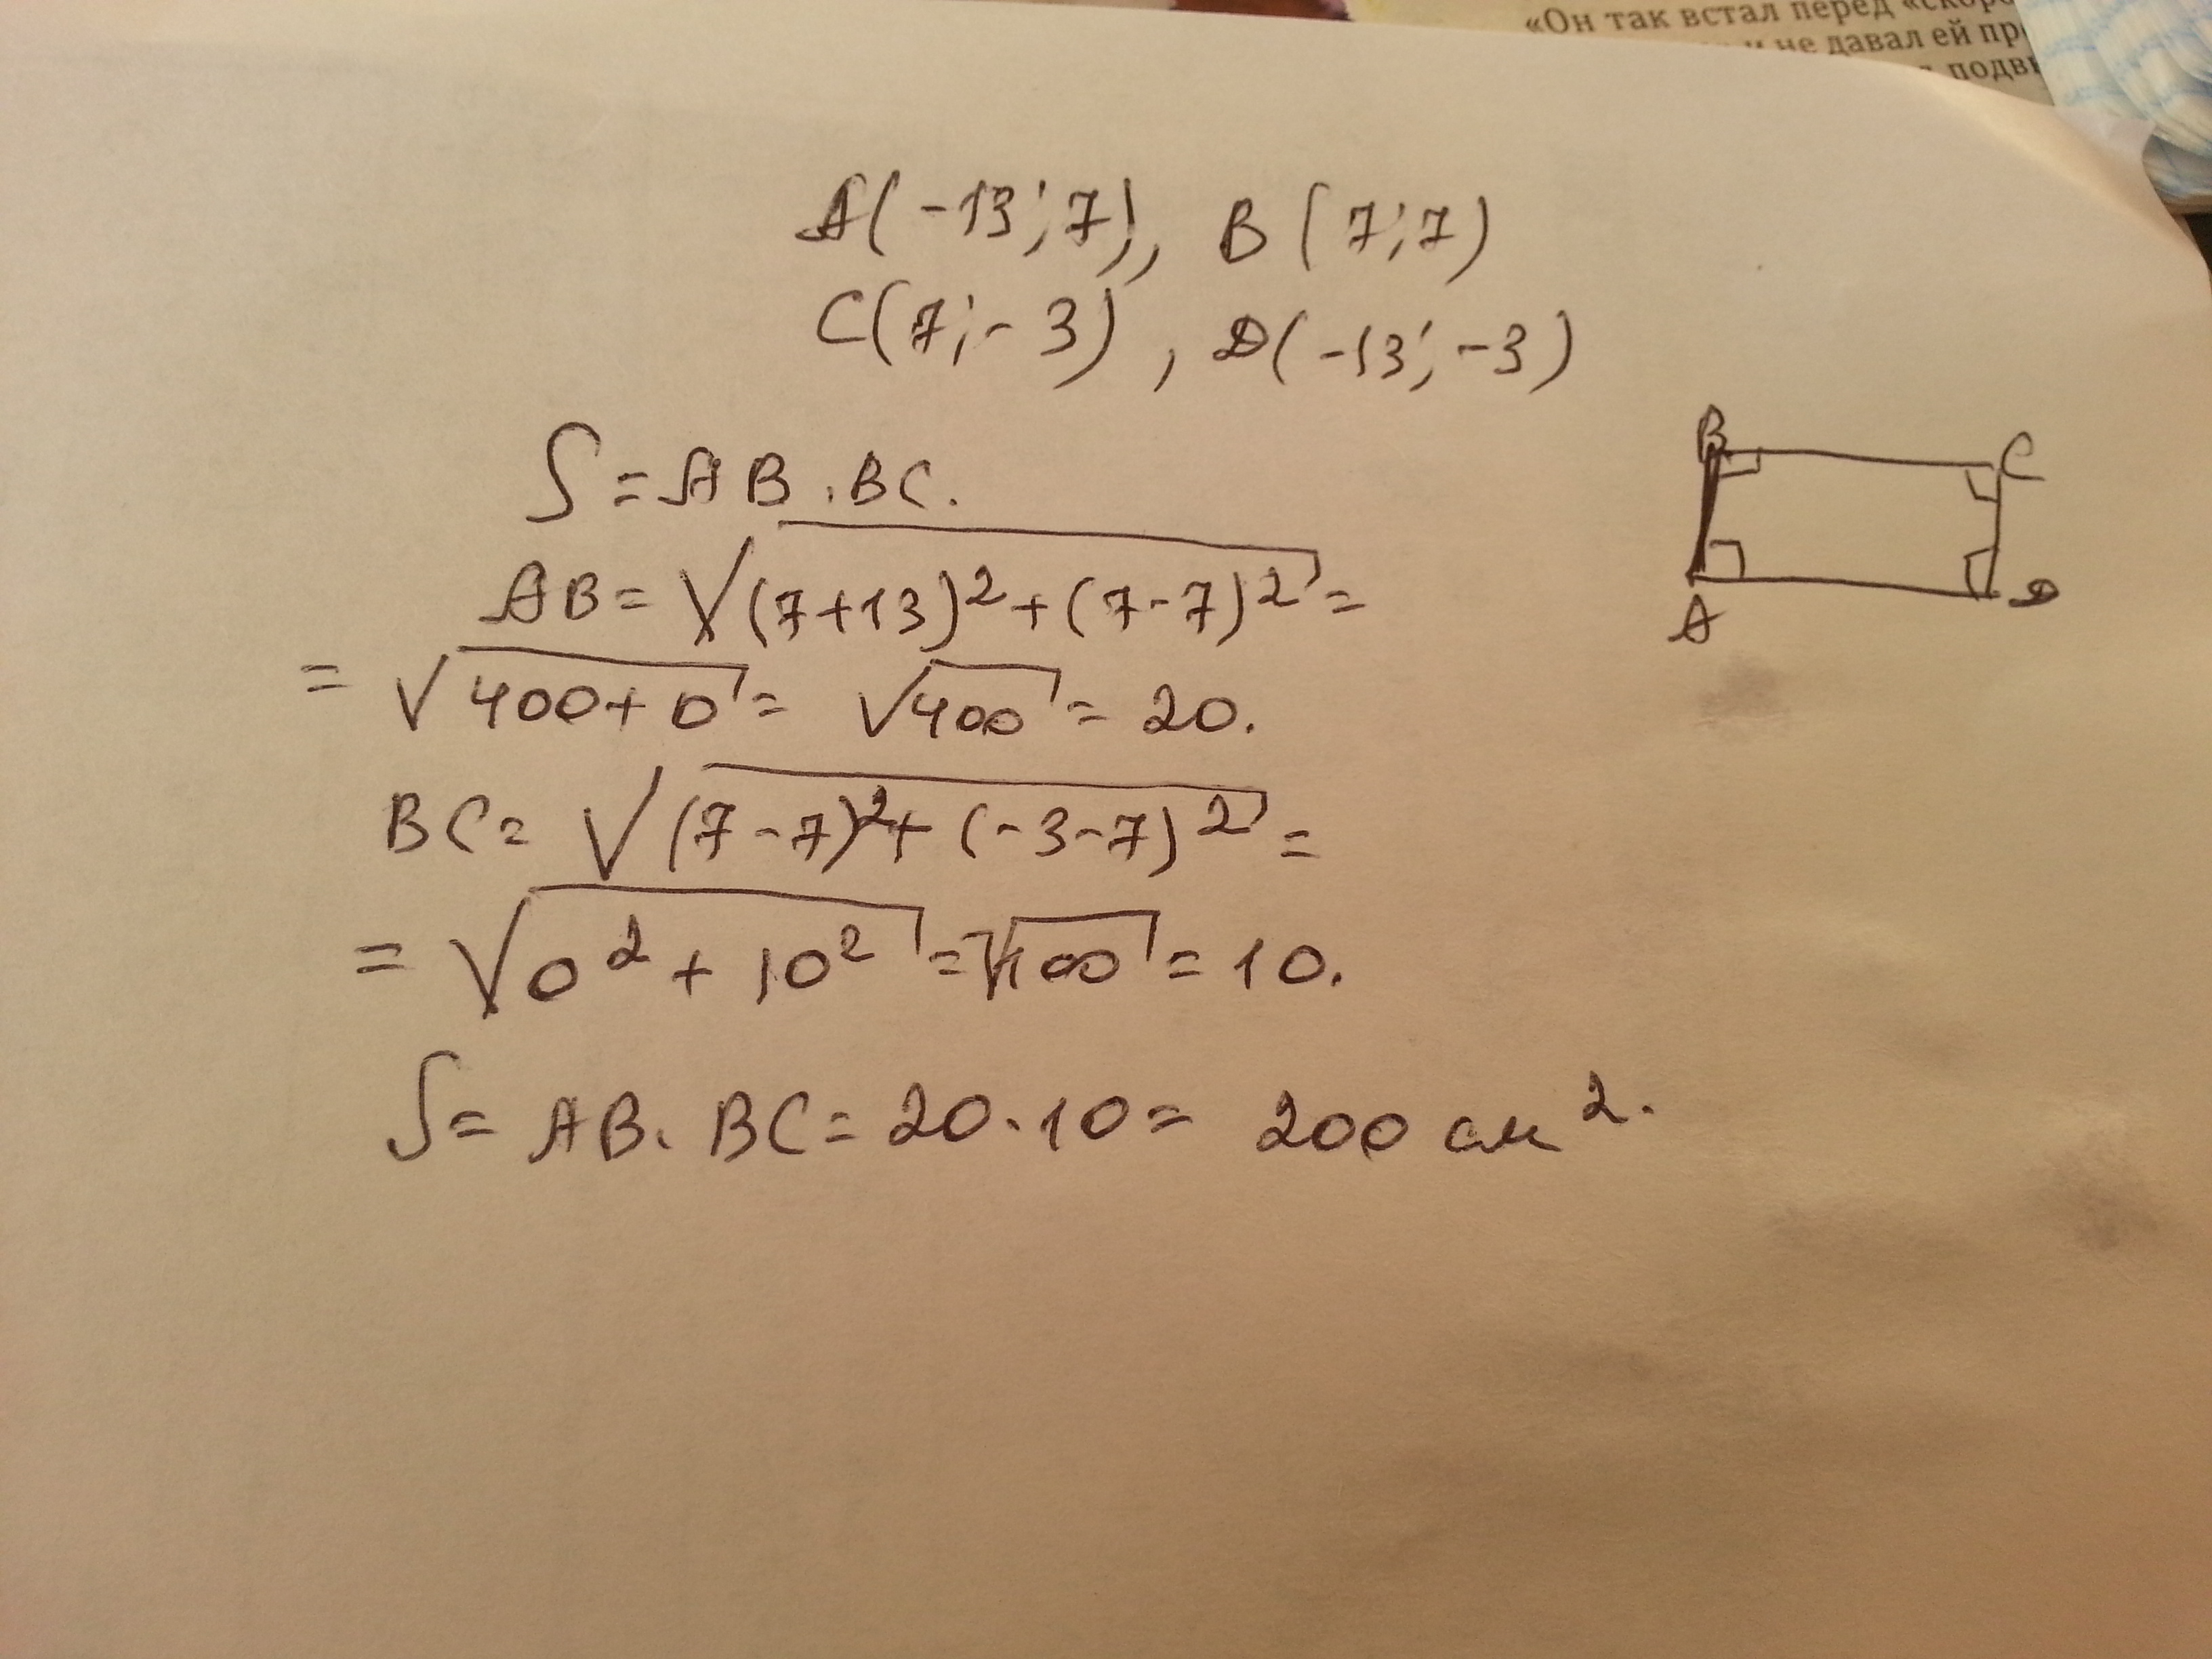 «Он так встал перед
и не давал ей
A(-13;7), B(7;7)
C(7;-3), D(-13;-3)
S=AB·BC.
B C
A D
AB=√(7+13)²+(7-7)²=
=√400+0=√400=20.
BC=√(7-7)²+(-3-7)²=
=√0²+10²=√100=10.
S=AB·BC=20·10=200 см².